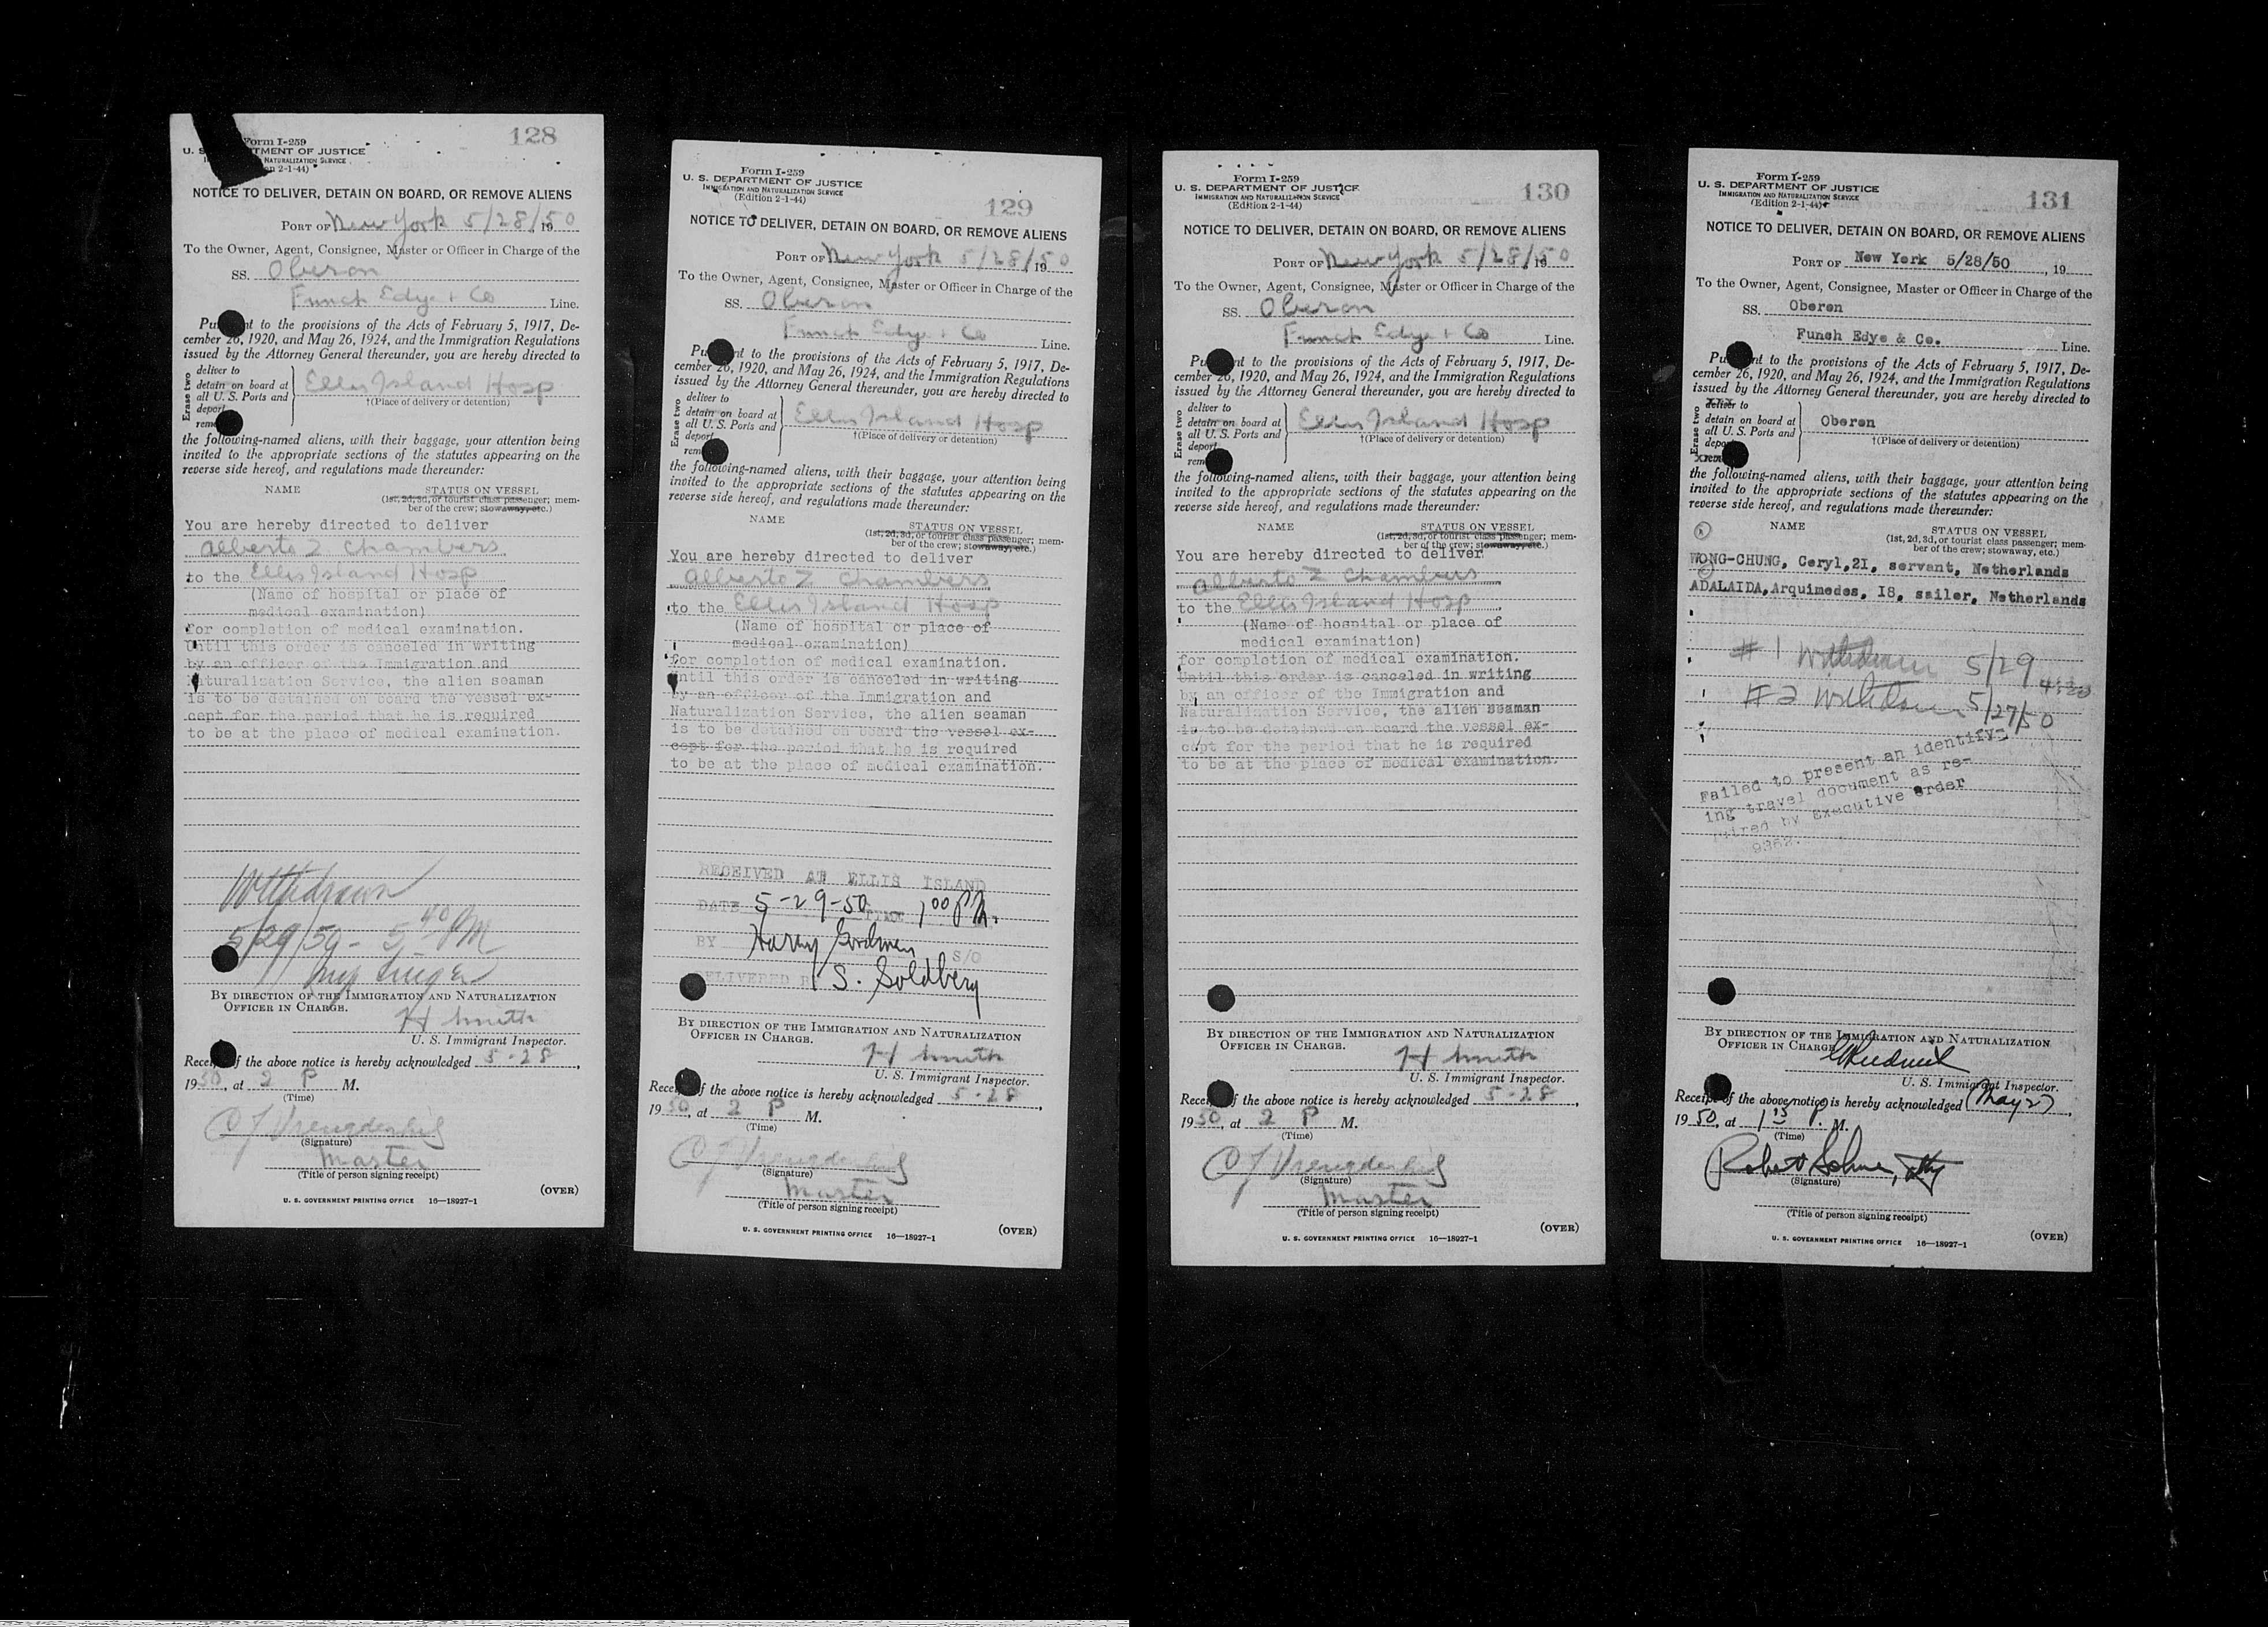 128
Form I-259
U. S. DEPARTMENT OF JUSTICE
NATURALIZATION SERVICE
2-1-44)
NOTICE TO DELIVER, DETAIN ON BOARD, OR REMOVE ALIENS
PORT OF New York 5/28/50 19
To the Owner, Agent, Consignee, Master or Officer in Charge of the
SS. Oberon
Funch Edye + Co Line.
Pursuant to the provisions of the Acts of February 5, 1917, De-
cember 26, 1920, and May 26, 1924, and the Immigration Regulations
issued by the Attorney General thereunder, you are hereby directed to
Erase two
deliver to
detain on board at
all U. S. Ports and
deport
remove
Ellis Island Hosp
†(Place of delivery or detention)
the following-named aliens, with their baggage, your attention being
invited to the appropriate sections of the statutes appearing on the
reverse side hereof, and regulations made thereunder:
NAME
STATUS ON VESSEL
(1st, 2d, 3d, or tourist class passenger; mem-
ber of the crew; stowaway, etc.)
You are hereby directed to deliver
Alberto Z Chambers
to the Ellis Island Hosp
(Name of hospital or place of
medical examination)
for completion of medical examination.
Until this order is canceled in writing
by an officer of the Immigration and
Naturalization Service, the alien seaman
is to be detained on board the vessel ex-
cept for the period that he is required
to be at the place of medical examination.
Withdrawn
5/29/50 - 5 40 PM
BY DIRECTION OF THE IMMIGRATION AND NATURALIZATION
OFFICER IN CHARGE.
H Smith
U. S. Immigrant Inspector.
Receipt of the above notice is hereby acknowledged 5-28,
1950, at 2 P M.
(Time)
(Signature)
Master
(Title of person signing receipt)
U. S. GOVERNMENT PRINTING OFFICE 16—18927-1
(OVER)
129
Form I-259
U. S. DEPARTMENT OF JUSTICE
IMMIGRATION AND NATURALIZATION SERVICE
(Edition 2-1-44)
NOTICE TO DELIVER, DETAIN ON BOARD, OR REMOVE ALIENS
PORT OF New York 5/28/50 19
To the Owner, Agent, Consignee, Master or Officer in Charge of the
SS. Oberon
Funch Edye + Co Line.
Pursuant to the provisions of the Acts of February 5, 1917, De-
cember 26, 1920, and May 26, 1924, and the Immigration Regulations
issued by the Attorney General thereunder, you are hereby directed to
Erase two
deliver to
detain on board at
all U. S. Ports and
deport
remove
Ellis Island Hosp
†(Place of delivery or detention)
the following-named aliens, with their baggage, your attention being
invited to the appropriate sections of the statutes appearing on the
reverse side hereof, and regulations made thereunder:
NAME
STATUS ON VESSEL
(1st, 2d, 3d, or tourist class passenger; mem-
ber of the crew; stowaway, etc.)
You are hereby directed to deliver
Alberto Z Chambers
to the Ellis Island Hosp
(Name of hospital or place of
medical examination)
for completion of medical examination.
Until this order is canceled in writing
by an officer of the Immigration and
Naturalization Service, the alien seaman
is to be detained on board the vessel ex-
cept for the period that he is required
to be at the place of medical examination.
RECEIVED AT ELLIS ISLAND
DATE 5-29-50 TIME 1 00 P.M.
BY Harry Goodman S/O
DELIVERED BY S. Goldberg
BY DIRECTION OF THE IMMIGRATION AND NATURALIZATION
OFFICER IN CHARGE.
H Smith
U. S. Immigrant Inspector.
Receipt of the above notice is hereby acknowledged 5-28,
1950, at 2 P M.
(Time)
(Signature)
Master
(Title of person signing receipt)
U. S. GOVERNMENT PRINTING OFFICE 16—18927-1
(OVER)
130
Form I-259
U. S. DEPARTMENT OF JUSTICE
IMMIGRATION AND NATURALIZATION SERVICE
(Edition 2-1-44)
NOTICE TO DELIVER, DETAIN ON BOARD, OR REMOVE ALIENS
PORT OF New York 5/28/50 19
To the Owner, Agent, Consignee, Master or Officer in Charge of the
SS. Oberon
Funch Edye + Co Line.
Pursuant to the provisions of the Acts of February 5, 1917, De-
cember 26, 1920, and May 26, 1924, and the Immigration Regulations
issued by the Attorney General thereunder, you are hereby directed to
Erase two
deliver to
detain on board at
all U. S. Ports and
deport
remove
Ellis Island Hosp
†(Place of delivery or detention)
the following-named aliens, with their baggage, your attention being
invited to the appropriate sections of the statutes appearing on the
reverse side hereof, and regulations made thereunder:
NAME
STATUS ON VESSEL
(1st, 2d, 3d, or tourist class passenger; mem-
ber of the crew; stowaway, etc.)
You are hereby directed to deliver
Alberto Z Chambers
to the Ellis Island Hosp
(Name of hospital or place of
medical examination)
for completion of medical examination.
Until this order is canceled in writing
by an officer of the Immigration and
Naturalization Service, the alien seaman
is to be detained on board the vessel ex-
cept for the period that he is required
to be at the place of medical examination.
BY DIRECTION OF THE IMMIGRATION AND NATURALIZATION
OFFICER IN CHARGE.
H Smith
U. S. Immigrant Inspector.
Receipt of the above notice is hereby acknowledged 5-28,
1950, at 2 P M.
(Time)
(Signature)
Master
(Title of person signing receipt)
U. S. GOVERNMENT PRINTING OFFICE 16—18927-1
(OVER)
131
Form I-259
U. S. DEPARTMENT OF JUSTICE
IMMIGRATION AND NATURALIZATION SERVICE
(Edition 2-1-44)
NOTICE TO DELIVER, DETAIN ON BOARD, OR REMOVE ALIENS
PORT OF New York 5/28/50, 19
To the Owner, Agent, Consignee, Master or Officer in Charge of the
SS. Oberon
Funch Edye & Co. Line.
Pursuant to the provisions of the Acts of February 5, 1917, De-
cember 26, 1920, and May 26, 1924, and the Immigration Regulations
issued by the Attorney General thereunder, you are hereby directed to
Erase two
deliver to
detain on board at
all U. S. Ports and
deport
remove
Oberon
†(Place of delivery or detention)
the following-named aliens, with their baggage, your attention being
invited to the appropriate sections of the statutes appearing on the
reverse side hereof, and regulations made thereunder:
NAME
STATUS ON VESSEL
(1st, 2d, 3d, or tourist class passenger; mem-
ber of the crew; stowaway, etc.)
WONG-CHUNG, Ceryl, 21, servant, Netherlands
ADALAIDA, Arquimedes, 18, sailor, Netherlands
#1 Withdrawn 5/29
#2 Withdrawn 5/27/50
Failed to present an identify-
ing travel document as re-
quired by Executive Order
9352.
BY DIRECTION OF THE IMMIGRATION AND NATURALIZATION
OFFICER IN CHARGE
U. S. Immigrant Inspector.
Receipt of the above notice is hereby acknowledged May 27,
1950, at 1 15 P. M.
(Time)
Robert
(Signature)
(Title of person signing receipt)
U. S. GOVERNMENT PRINTING OFFICE 16—18927-1
(OVER)